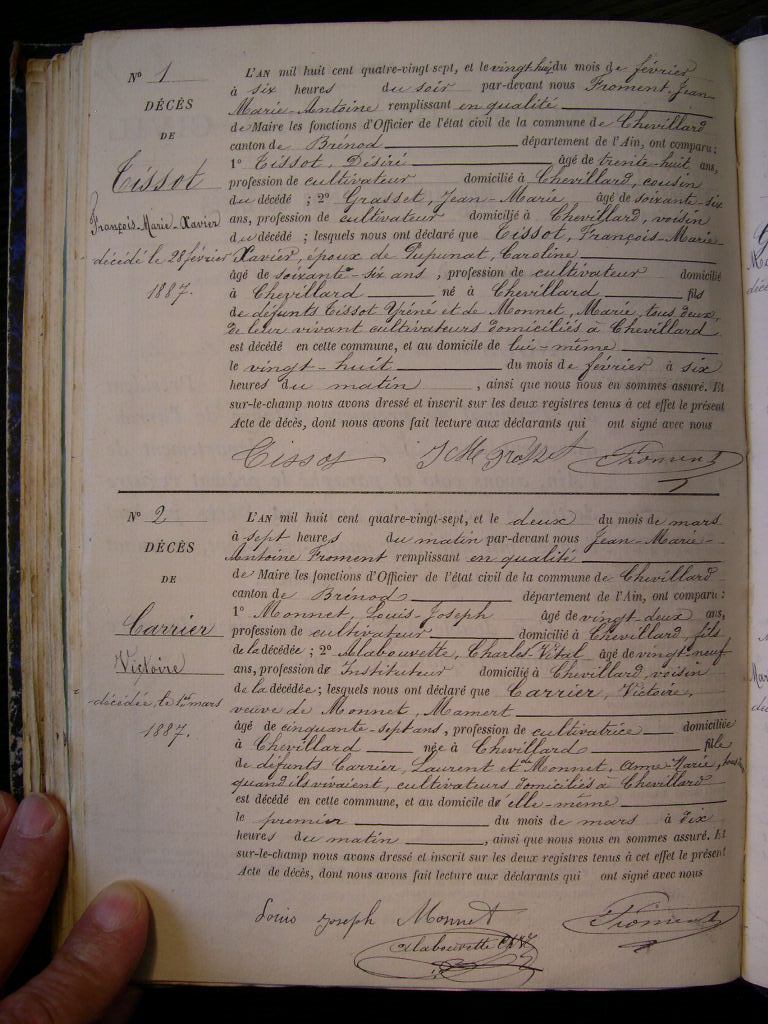 N° 1
DÉCÈS
DE
Tissot
François-Marie-Xavier
décédé le 28 février
1887.
L'AN mil huit cent quatre-vingt sept, et le vingt huit du mois de février
à six heures du soir par-devant nous Froment, Jean
Marie-Antoine remplissant en qualité
de Maire les fonctions d'Officier de l'état civil de la commune de Chevillard
canton de Brénod département de l'Ain, ont comparu :
1° Tissot, Désiré âgé de trente-huit ans,
profession de cultivateur domicilié à Chevillard, cousin
du décédé ; 2° Grasset, Jean-Marie âgé de soixante-six
ans, profession de cultivateur domicilié à Chevillard, voisin
du décédé ; lesquels nous ont déclaré que Tissot, François-Marie-
Xavier, époux de Pupunat, Caroline
âgé de soixante-six ans, profession de cultivateur domicilié
à Chevillard né à Chevillard fils
de défunts Tissot Yréné et de Monnet, Marie, tous deux,
de leur vivant cultivateurs domiciliés à Chevillard
est décédé en cette commune, et au domicile de lui-même
le vingt-huit du mois de février à six
heures du matin , ainsi que nous nous en sommes assuré. Et
sur-le-champ nous avons dressé et inscrit sur les deux registres tenus à cet effet le présent
Acte de décès, dont nous avons fait lecture aux déclarants qui ont signé avec nous
Tissot J M Grasset Froment
N° 2
DÉCÈS
DE
Carrier
Victoire
décédée, le 1er mars
1887.
L'AN mil huit cent quatre-vingt-sept, et le deux du mois de mars
à sept heures du matin par-devant nous Jean-Marie-
Antoine Froment remplissant en qualité
de Maire les fonctions d'Officier de l'état civil de la commune de Chevillard
canton de Brénod département de l'Ain, ont comparu :
1° Monnet, Louis-Joseph âgé de vingt-deux ans,
profession de cultivateur domicilié à Chevillard, fils
de la décédée ; 2° Alabouvette, Charles-Vital âgé de vingt-neuf
ans, profession de Instituteur domicilié à Chevillard, voisin
de la décédée ; lesquels nous ont déclaré que Carrier, Victoire,
veuve de Monnet, Mamert
âgé de cinquante-sept ans, profession de cultivatrice domiciliée
à Chevillard née à Chevillard fille
de défunts Carrier, Laurent et de Monnet, Anne-Marie,
quand ils vivaient, cultivateurs domiciliés à Chevillard
est décédé en cette commune, et au domicile de elle-même
le premier du mois de mars à dix
heures du matin , ainsi que nous nous en sommes assuré. Et
sur-le-champ nous avons dressé et inscrit sur les deux registres tenus à cet effet le présent
Acte de décès, dont nous avons fait lecture aux déclarants qui ont signé avec nous
Louis Joseph Monnet Froment
Alabouvette